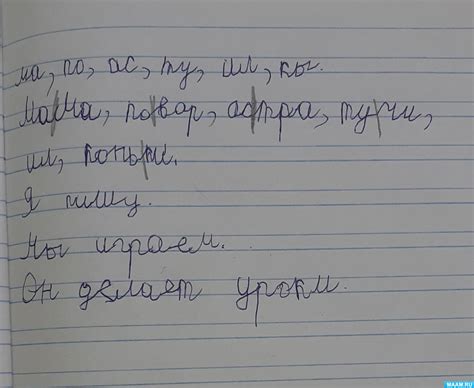 ма, по, ас, ту, ил, кы.
Ма|ма, по|вар, ас|тра, ту|чи,
ил, конь|ки.
Я пишу.
Мы играем.
Он делает уроки.
MAAM.RU